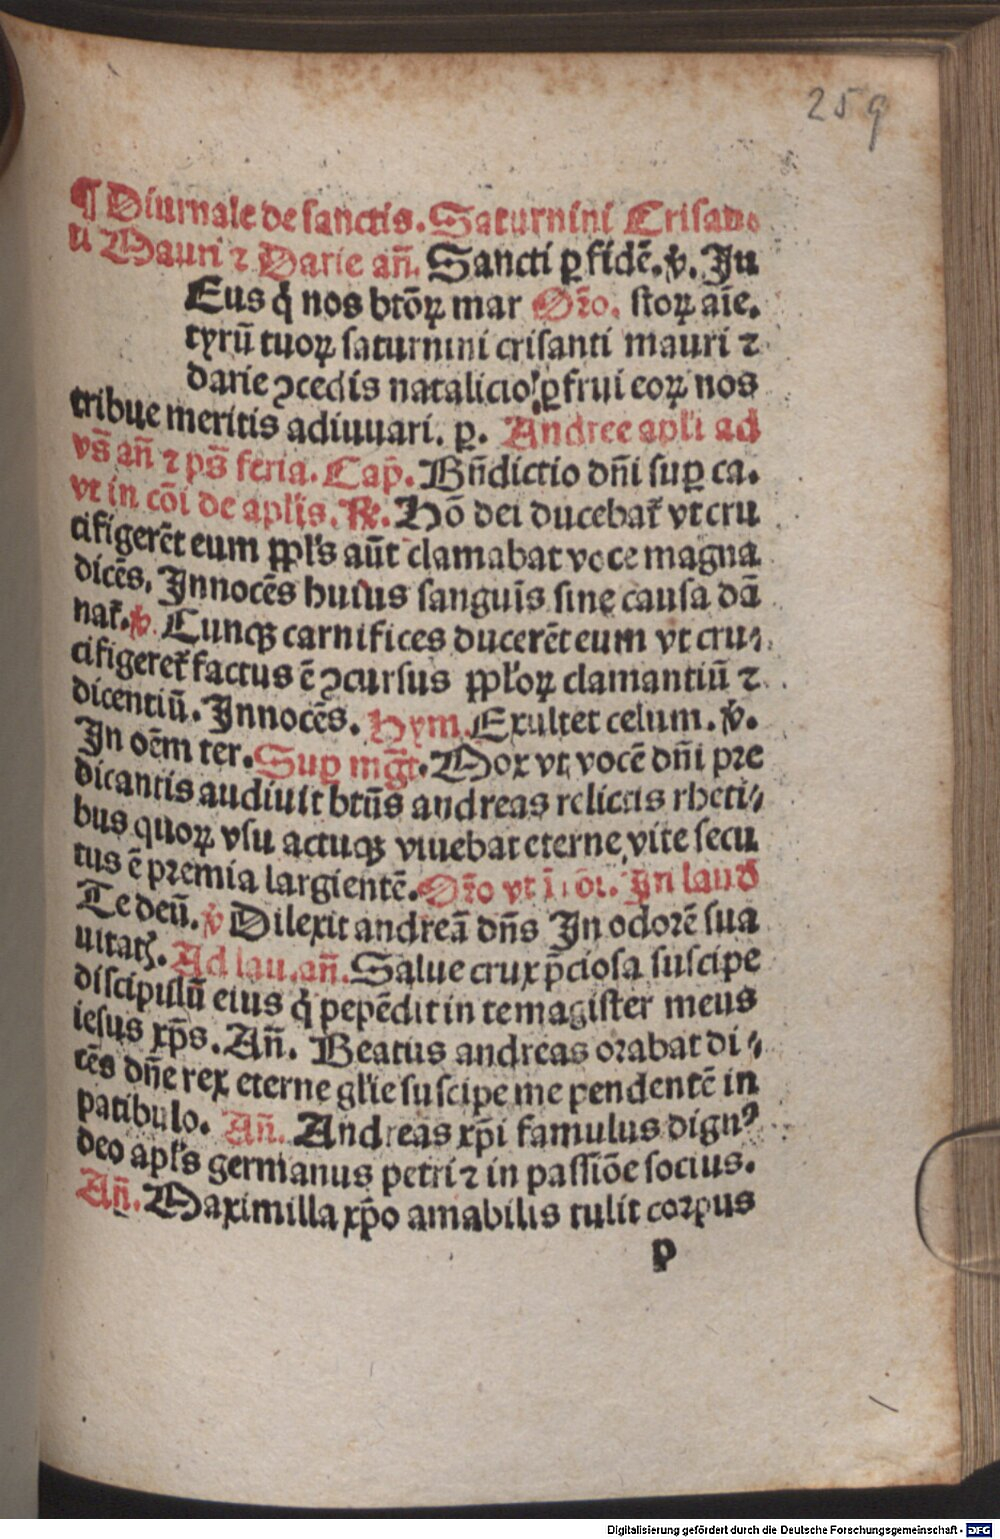 259
¶ Diurnale de sanctis. Saturnini Crisan⸗
ti Mauri ⁊ Darie an̄. Sancti ꝑ fidē. ℣. Iu
Eus q̇ nos btōꝝ mar Oꝛ̄o. stoꝝ aīe.
tyrū tuoꝝ saturnini crisanti mauri ⁊
darie ꝯcedis natalicio ꝑfrui eoꝝ nos
tribue meritis adiuuari. ꝑ. Andree apl'i ad
vs̄ an̄ ⁊ ps̄ feria. Cap̄. Bn̄dictio dn̄i suꝑ ca.
vt in cōi de apl'is. ℟. Hō dei ducebat᷑ vt cru
cifigerēt eum ppl's aūt clamabat voce magna
dicēs. Innocēs huius sanguis̄ sine causa dā
nat᷑. ℣. Cunqꝫ carnifices ducerēt eum vt cru⸗
cifigeret᷑ factus ē ꝯcursus ppl'oꝝ clamantiū ⁊
dicentiū. Innocēs. Hym. Exultet celum. ℣.
In oēm ter. Suꝑ mg̅t. Mox vt vocē dn̄i pre
dicantis audiuit btūs andreas relictis rheti⸗
bus quoꝝ vsu actuqꝫ viuebat eterne vite secu
tus ē pꝛemia largientē. Oꝛ̄o vt ī cōi. In laud
Te deū. ℣ Dilexit andreā dn̄s In odorē sua
uitatꝭ. Ad lau. an̄. Salue crux p̄ciosa suscipe
discipulū eius q̇ pepēdit in te magister meus
iesus xp̄s. An̄. Beatus andreas oꝛabat di⸗
cēs dn̄e rex eterne gl'ie suscipe me pendentē in
patibulo. An̄. Andreas xp̄i famulus dignꝰ
deo apl's germanus petri ⁊ in passiōe socius.
An̄. Maximilla xp̄o amabilis tulit coꝛpus
p
Digitalisierung gefördert durch die Deutsche Forschungsgemeinschaft - DFG